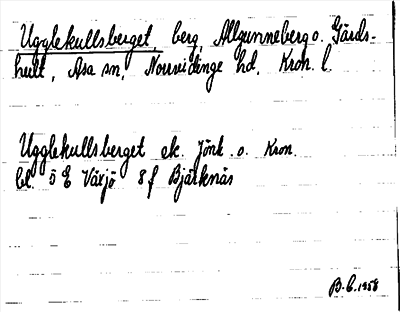 Ugglekullsberget, berg, Allgunneberg o. Gårds-
hult, Asa sn, Norrvidinge hd, Kron. l.
Ugglekullsberget ek. Jönk. o. Kron.
bl. 5 E Växjö 8 f Bjärknäs
B.C. 1958